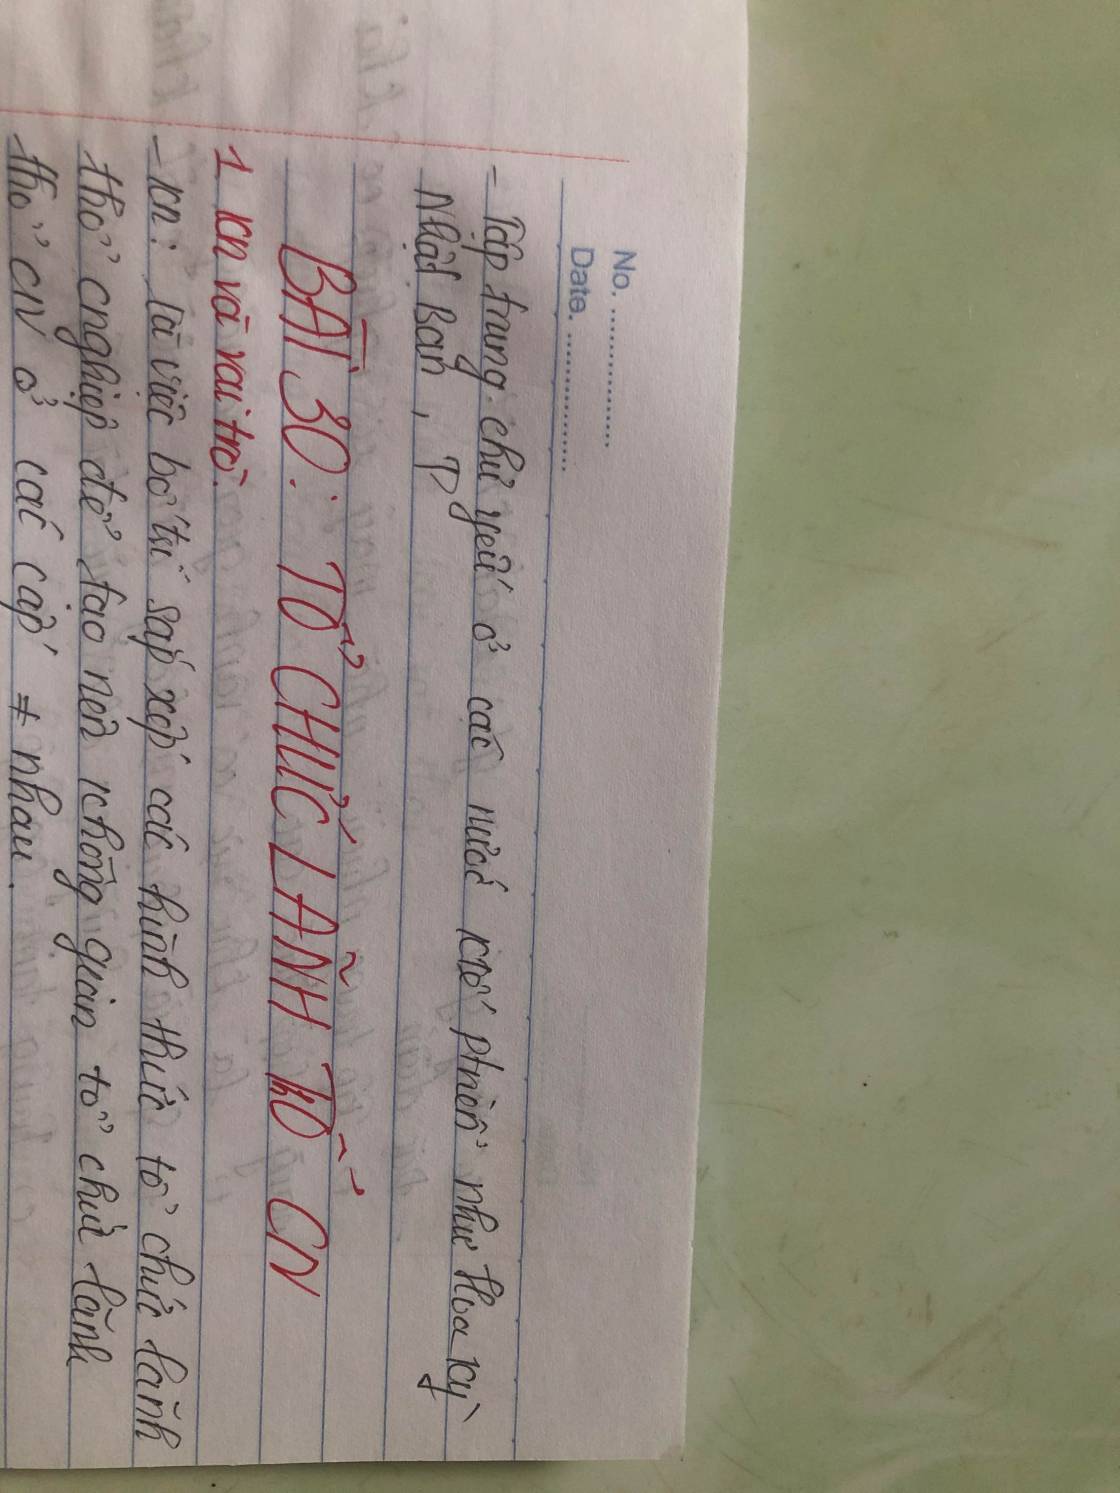 No. ...................
Date. ...................
- Tập trung chủ yếu ở các nước ktế ptriển như Hoa Kỳ
Nhật Bản,
BÀI 30: TỔ CHỨC LÃNH THỔ CN
1 kn và vai trò.
- kn: là việc bố trí sắp xếp các hình thức tổ chức lãnh
thổ cnghiệp để tạo nên không gian tổ chức lãnh
thổ CN ở các cấp ≠ nhau.